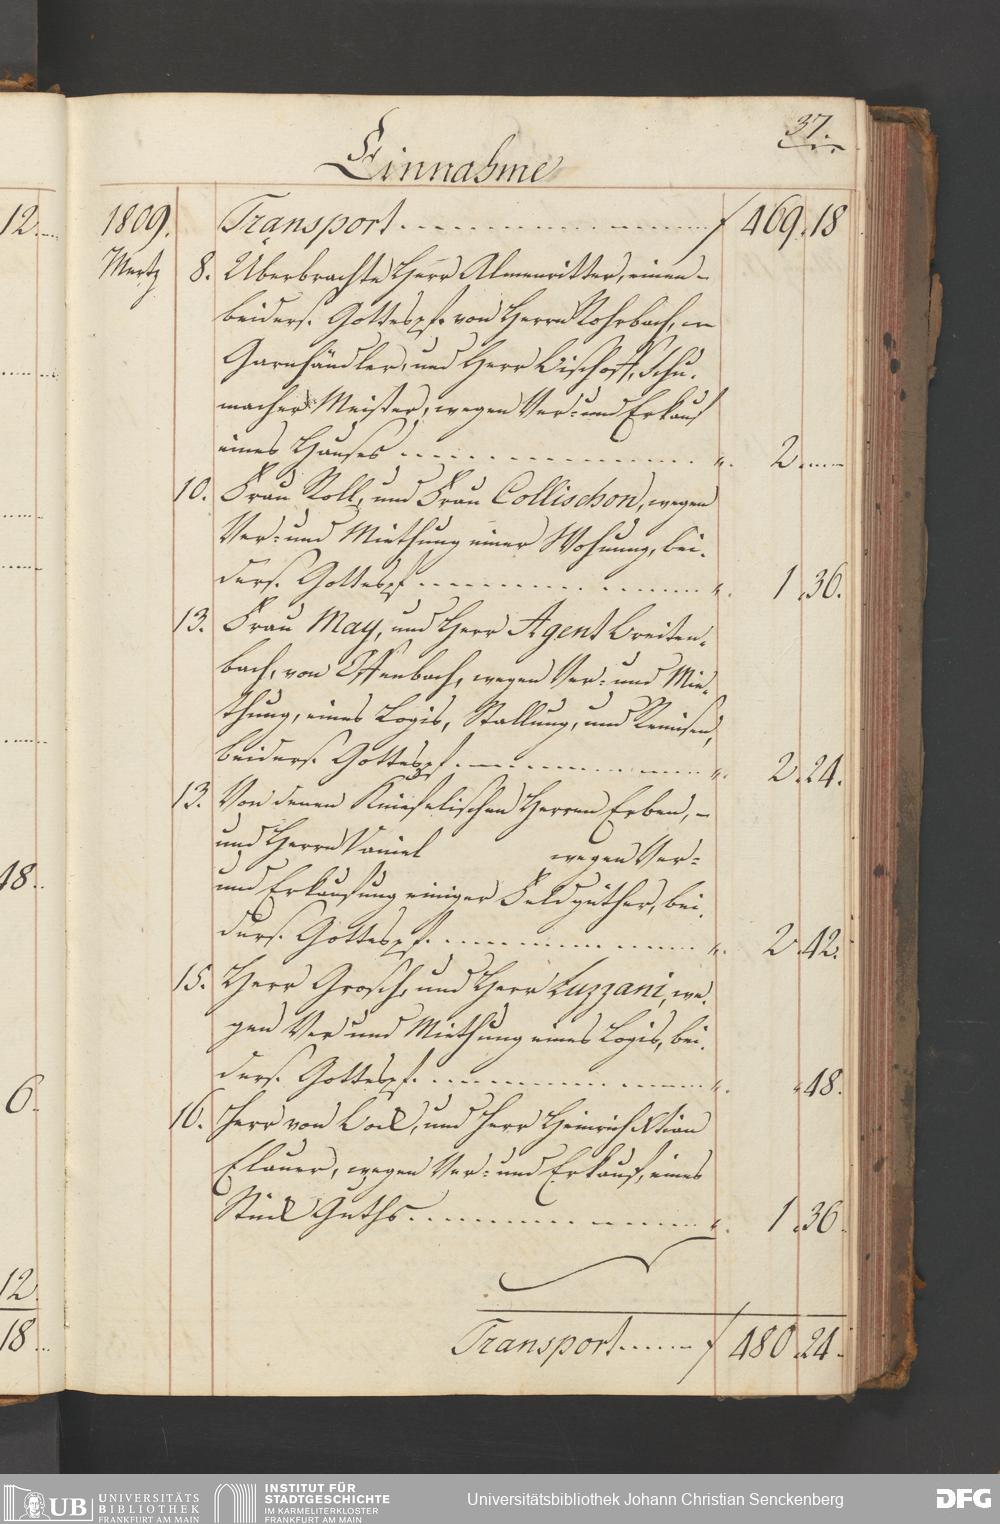 37.
Einnahme
1809. Transport . . . . . . . . . . f 469. 18
Mertz 8. Überbrachte Herr Almenritter, einen
beiders. Gottespf. von Herrn Rohrbach,
Garnhändler, und Herr Bischoff, Schu-
macher Meister, wegen Ver- und Erkauf
eines Hauses . . . . . . . . . . ". 2. —
10. Frau Roll, und Frau Collischon, wegen
Ver- und Miethung einer Wohnung, bei-
ders. Gottespf. . . . . . . . . . ". 1. 36.
13. Frau May, und Herr Agent Breiten-
bach, von Offenbach, wegen Ver- und Mie-
thung, eines Logis, Stallung, und Remisen,
beiders. Gottespf. . . . . . . . . . ". 2. 24.
13. Von denen Herren Erben,
und Herrn Daniel wegen Ver-
und Erkaufung einiger Feldgüther, bei-
ders. Gottespf. . . . . . . . . . ". 2. 42.
15. Herr Grosch, und Herr Luzzani, we-
gen Ver und Miethung eines Logis, bei-
ders. Gottespf. . . . . . . . . . ". " 48.
16. Herr von und Herr Heinrich
Clauer, wegen Ver- und Erkauf, eines
Stück Guths . . . . . . . . . . ". 1. 36.
Transport . . . . . . f 480. 24.
12.
48.
6.
12.
18
UB UNIVERSITÄTS
BIBLIOTHEK
FRANKFURT AM MAIN
INSTITUT FÜR
STADTGESCHICHTE
IM KARMELITERKLOSTER
FRANKFURT AM MAIN
Universitätsbibliothek Johann Christian Senckenberg
DFG